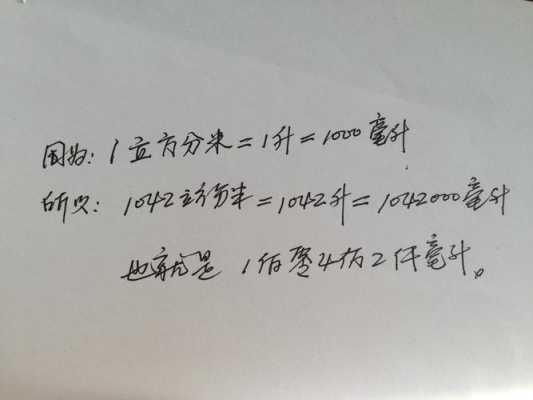 因为：1立方分米=1升=1000毫升
所以：1042立方分米=1042升=1042000毫升
也就是 1佰零4万2仟毫升。